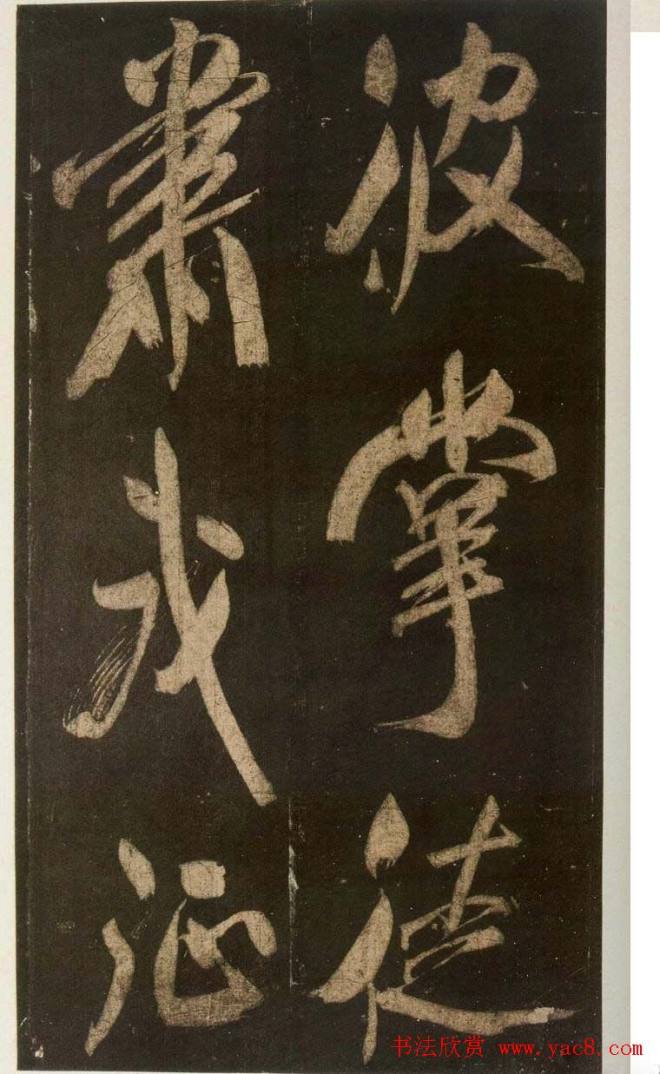 波掌徒
肅我征
书法欣赏 www.yac8.com